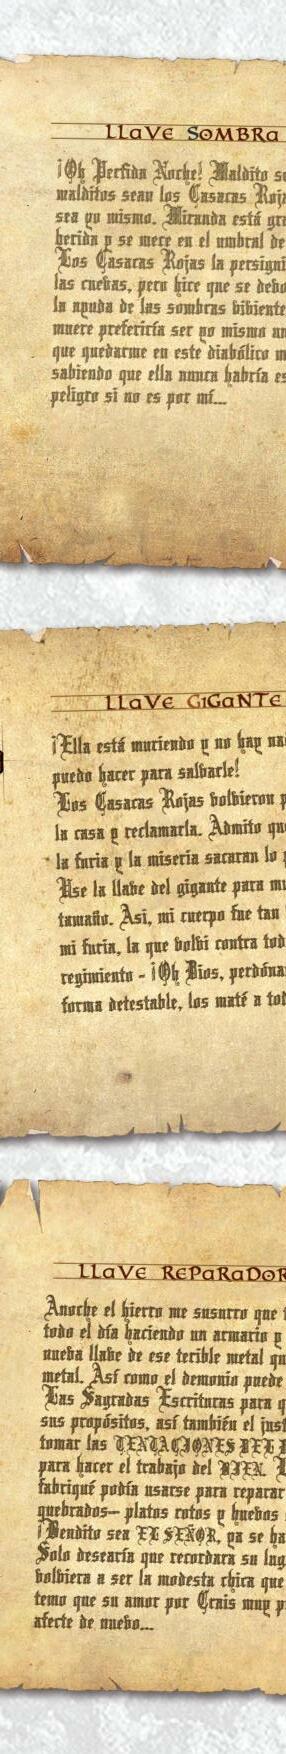 LLAVE SOMBRA
¡Oh Perfida Noche! Maldito
malditos sean los Casacas
sea yo mismo. Miranda está
herida y se mece en el umbral de
Los Casacas Rojas la
las cuebas, pero hice que se
la ayuda de las sombras bibientes
muere preferiría ser yo mismo
que quedarme en este diabólico
sabiendo que ella nunca habría
peligro si no es por mí...
LLAVE GIGANTE
¡Ella está muriendo y no hay
puedo hacer para salbarle!
Los Casacas Rojas bolbieron
la casa y reclamarla. Admito
la furia y la miseria sacaran lo
Use la llabe del gigante para
tamaño. Asi, mi cuerpo fue tan
mi furia, la que bolbi contra
regimiento - ¡Oh Dios,
forma detestable, los maté a
LLAVE REPARADOR
Anoche el hierro me susurro que
todo el día haciendo un armario y
nueba llabe de ese terible metal
metal. Así como el demonio puede
Las Sagradas Escrituras para
sus propósitos, así también el
tomar las TENTACIONES DEL
para hacer el trabajo del BIEN.
fabriqué podía usarse para reparar
quebrados– platos rotos y huebos
¡Bendito sea EL SEÑOR, ya se
Solo desearía que recordara su
bolbiera a ser la modesta chica que
temo que su amor por Crais muy
afecte de nuebo...